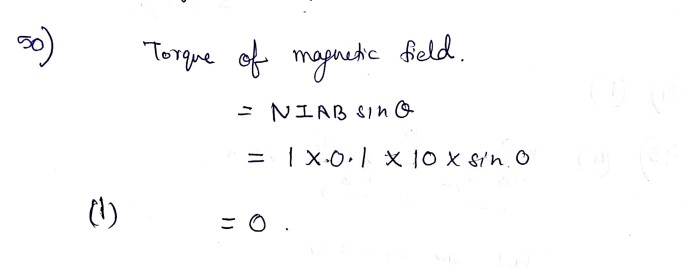 50) Torque of magnetic field.
= NIAB sin θ
= 1 X 0.1 X 10 X sin 0
(1) = 0.